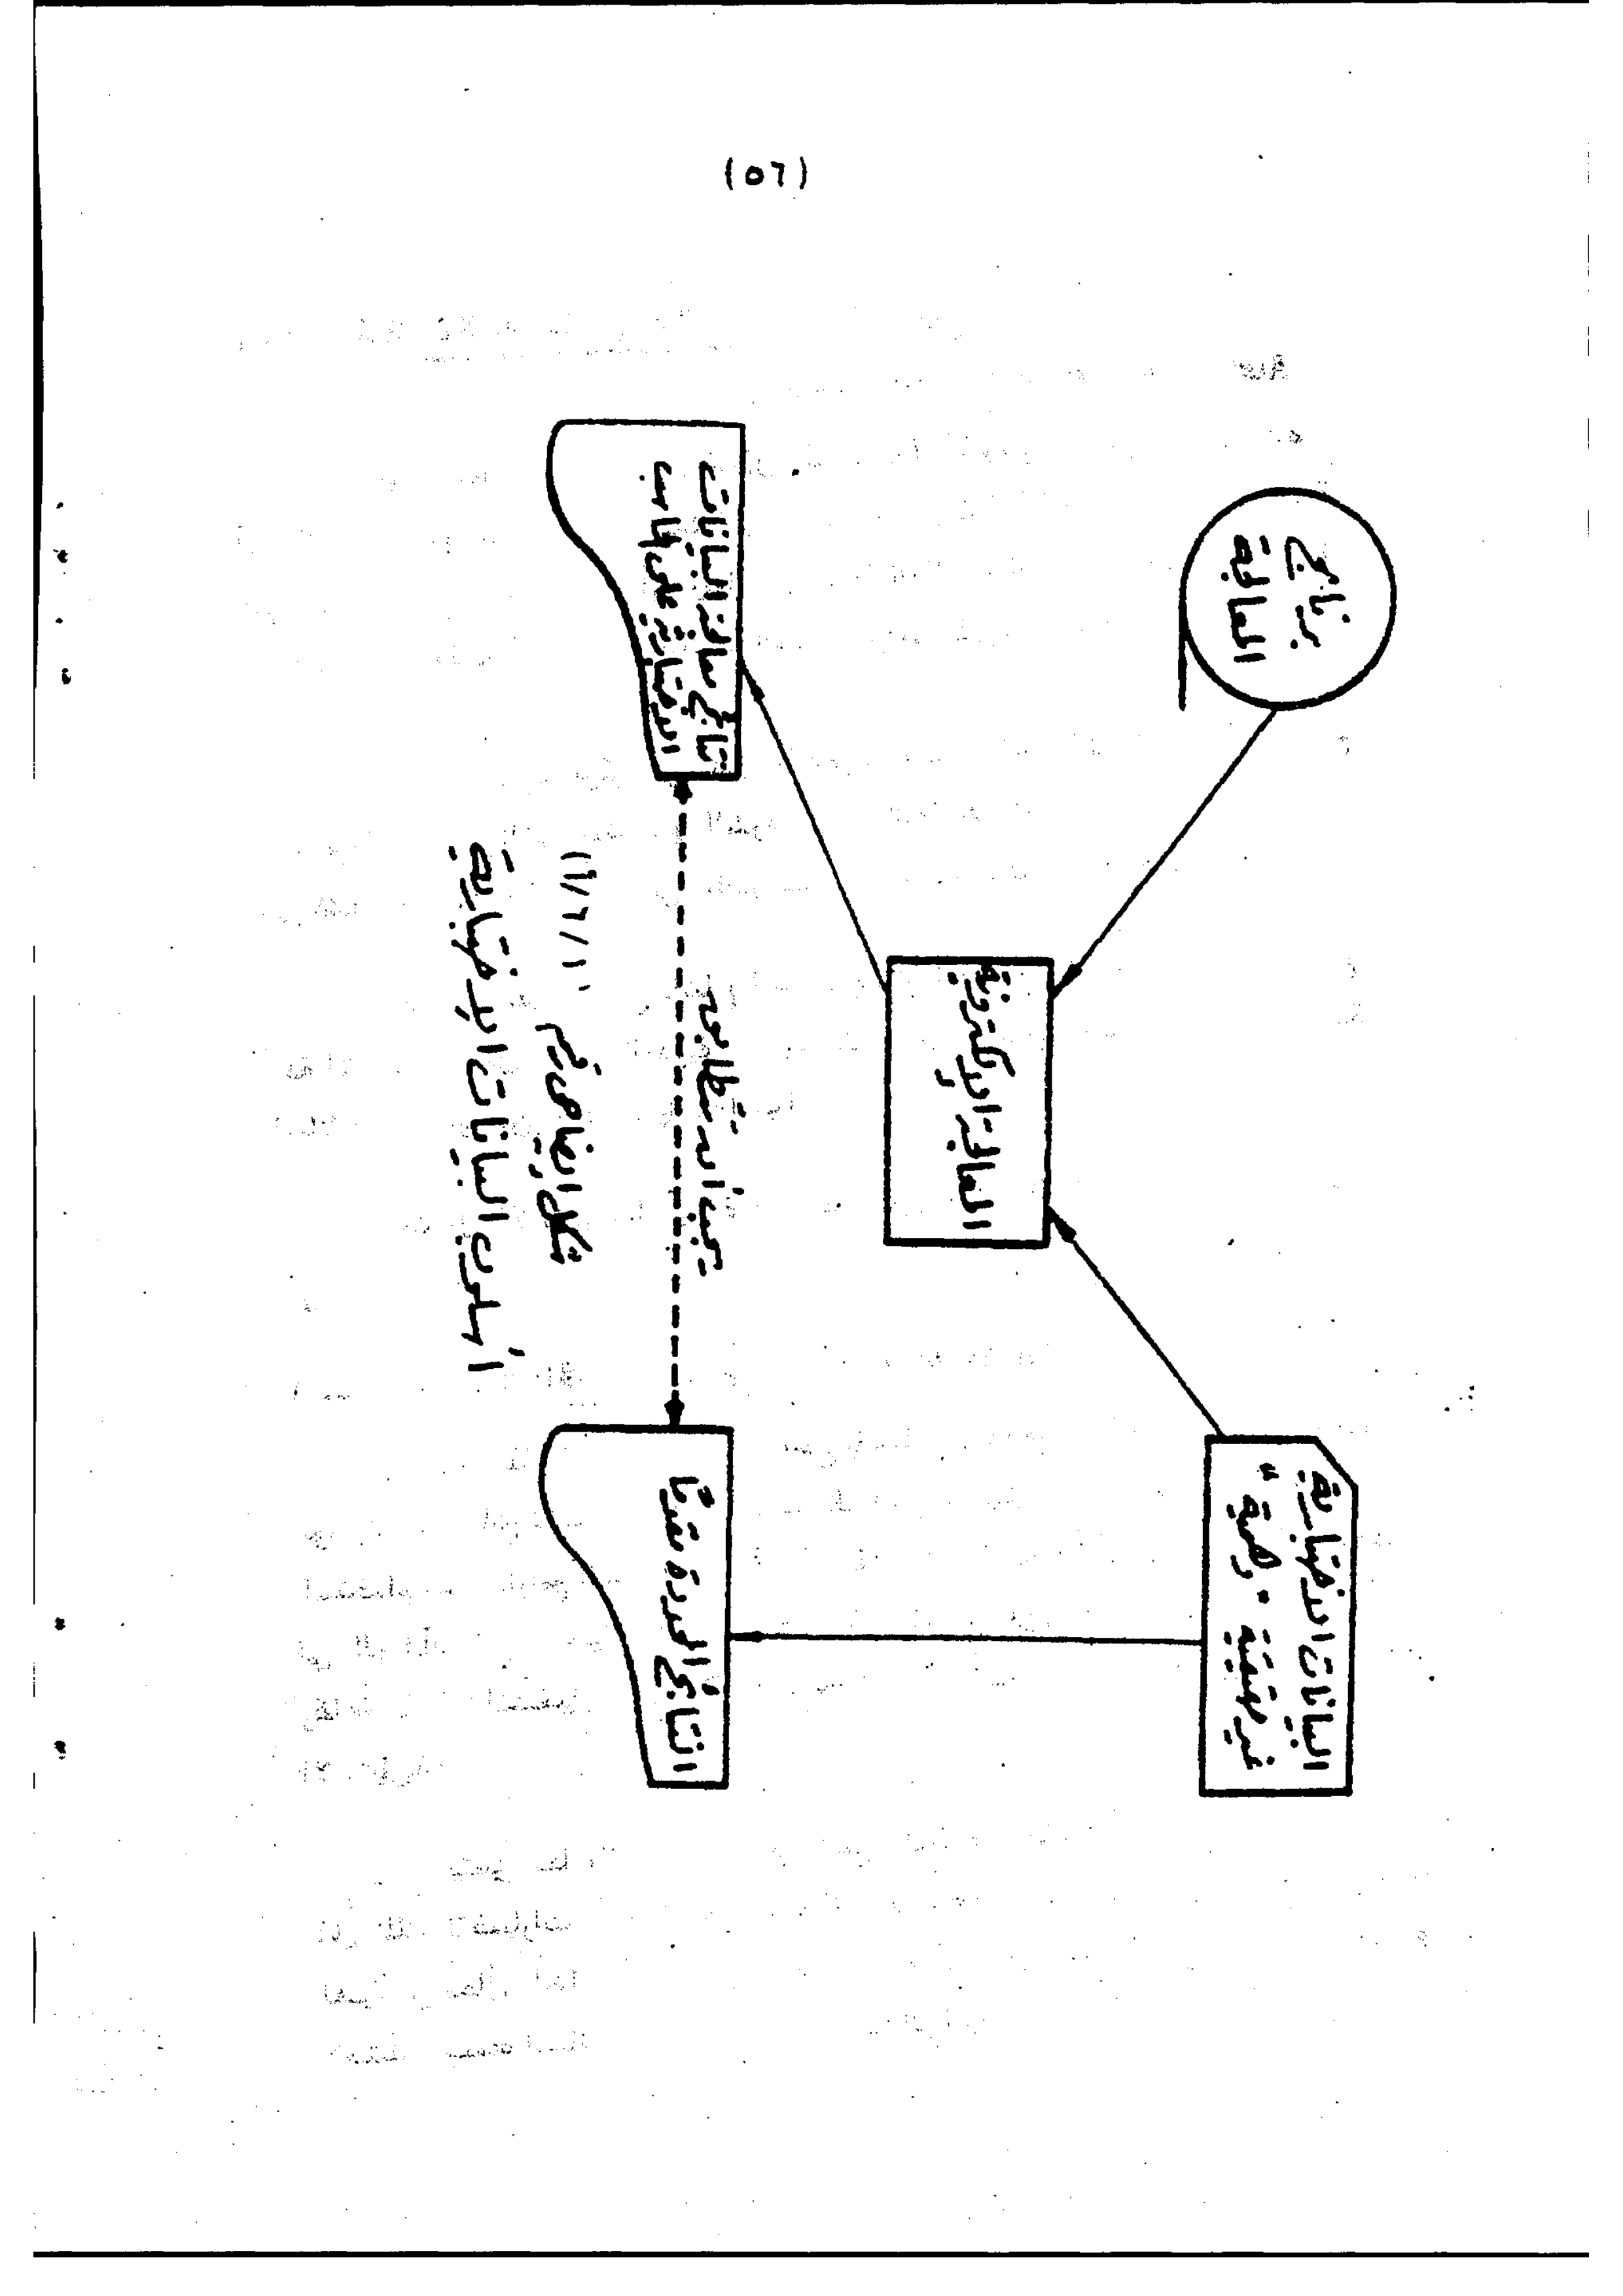 (٥٦)
برنامج
المعالجة
البيانات الاختبارية
غير حقيقية " وهمية "
المعالجة الإلكترونية
نتائج معالجة البيانات
الاختبارية على الحاسب
النتائج المعدة مقدمًا
يجب أن تتطابق
شكل إيضاحي رقم
أسلوب البيانات الاختبارية